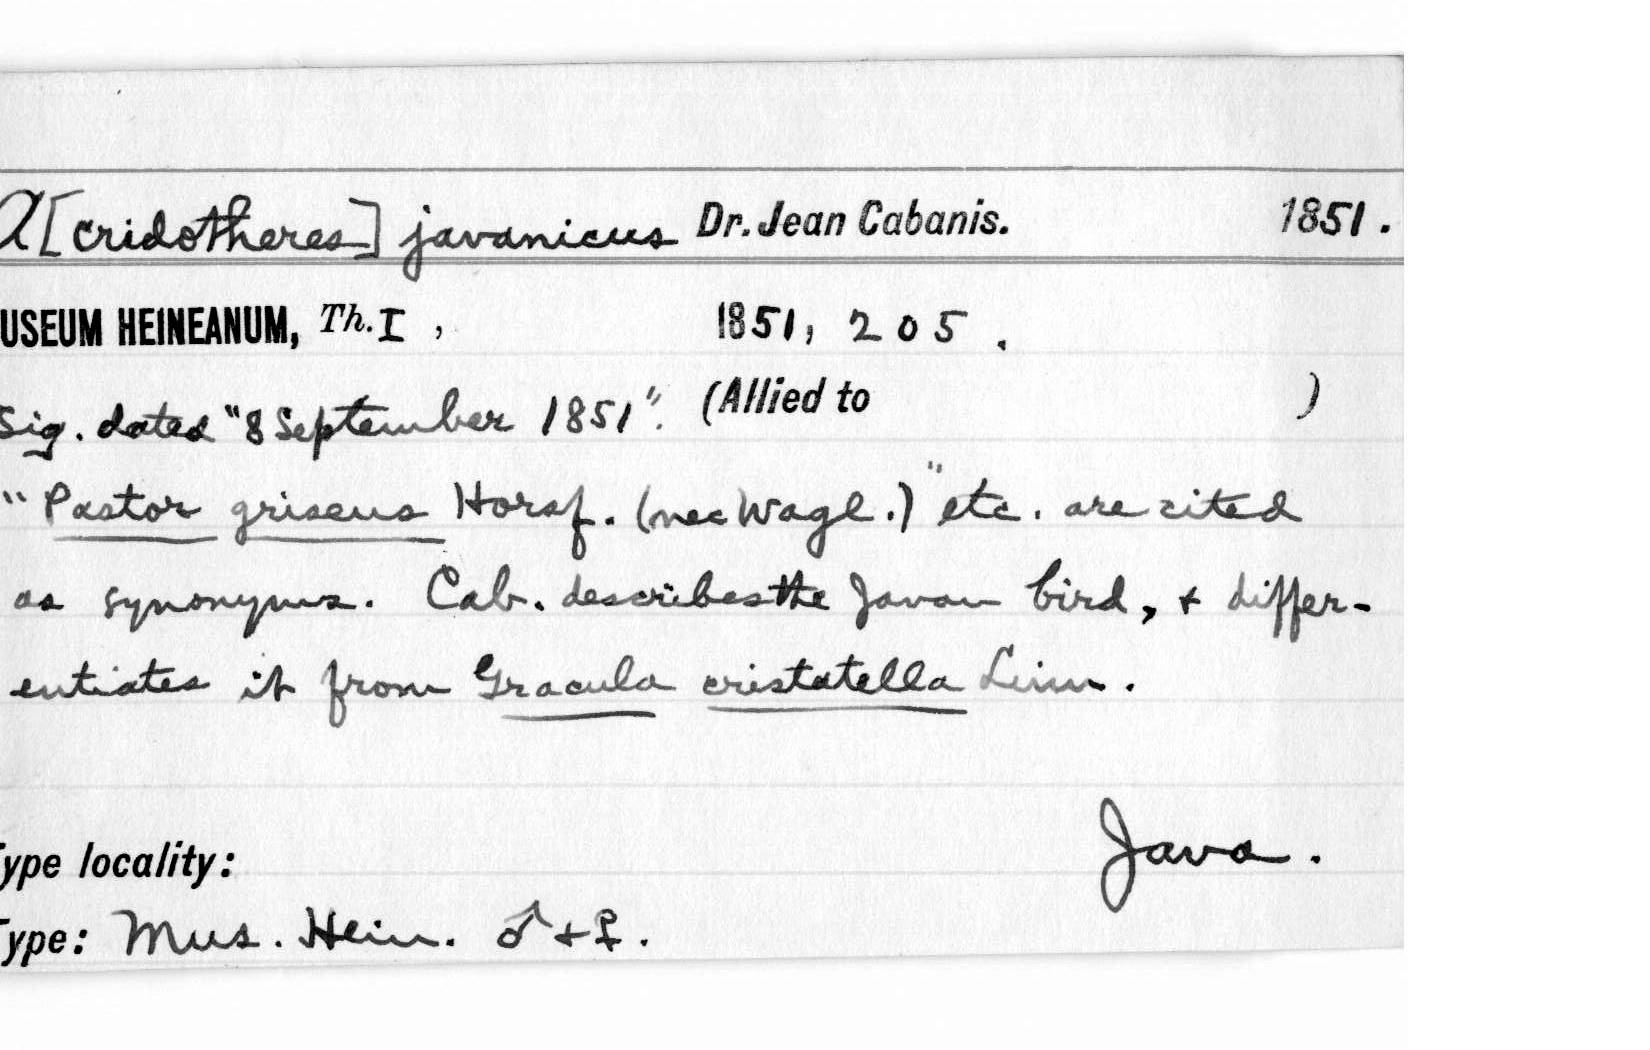 A[cridotheres] javanicus Dr. Jean Cabanis. 1851.
USEUM HEINEANUM, Th. I, 1851, 205.
Sig. dated "8 September 1851". (Allied to )
"Pastor griseus Horsf. (nec Wagl.)" etc. are cited
as synonyms. Cab. describes the Javan bird, + differ-
entiates it from Gracula cristatella Linn.
Java.
ype locality:
ype: Mus. Hein. ♂ + ♀.